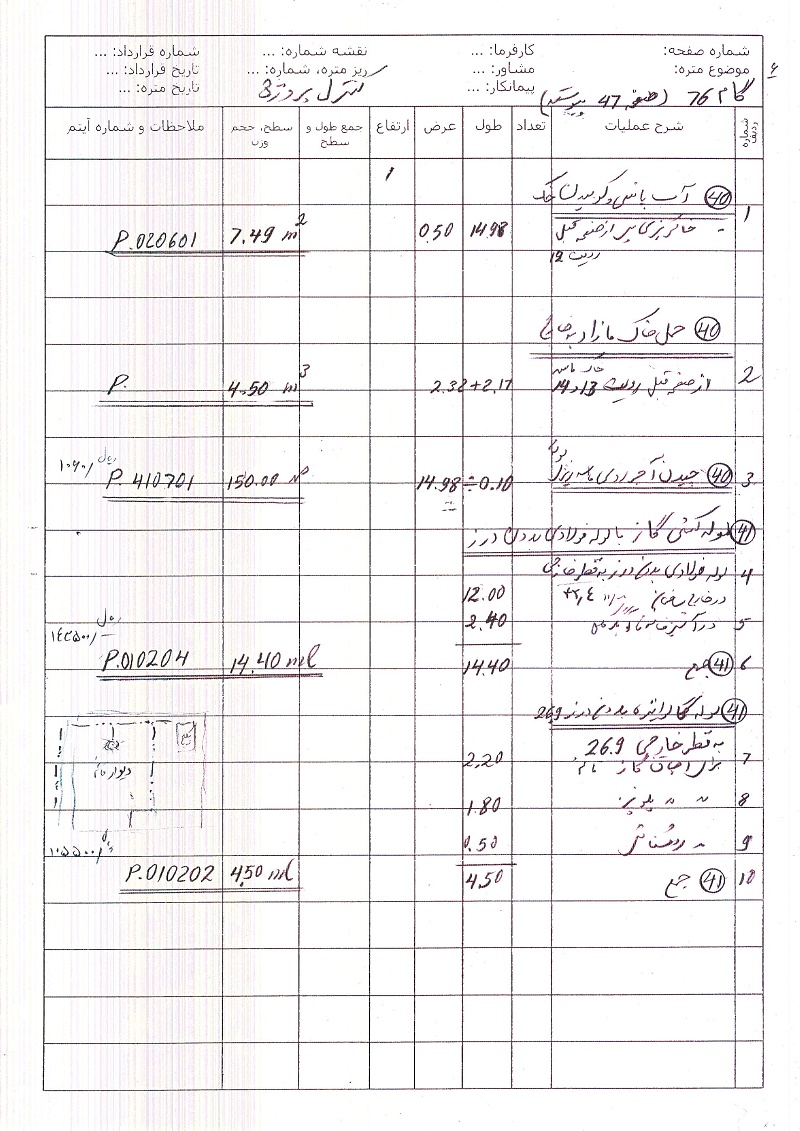 شماره صفحه: کارفرما: ... نقشه شماره: ... شماره قرارداد: ...
موضوع متره: مشاور: ... ریز متره، شماره: ... تاریخ قرارداد: ...
پیمانکار: ... تاریخ متره: ...
گام 76 (صفحه 47 ) کنترل پروژه
شماره ردیف شرح عملیات تعداد طول عرض ارتفاع جمع طول و سطح سطح، حجم وزن ملاحظات و شماره آیتم
40 آب پاشی و کوبیدن خاک
1 - خاکریزی پس از صفحه قبل 14.98 0.50 7.49 m2 P.020601
ردیف 12
40 حمل خاک مازاد به خارج
2 از صفحه قبل ردیف 13 و 14 2.32+2.17 4.50 m3 P.
3 40 چیدن آجر روی ماسه 14.98 ÷ 0.10 150.00 P.410701 ریال
41 لوله کشی گاز با لوله فولادی بدون درز
4 لوله فولادی بدون درز به قطر خارجی
12.00
5 در آشپزخانه 2.40 ریال
6 41 جمع 14.40 14.40 ml P.010204
41 لوله گالوانیزه بدون درز 26.9
7 به قطر خارجی 26.9
برای اجاق گاز 2.20
8 〃 〃 1.80
9 〃 روشنائی 0.50
10 41 جمع 4.50 4.50 ml P.010202